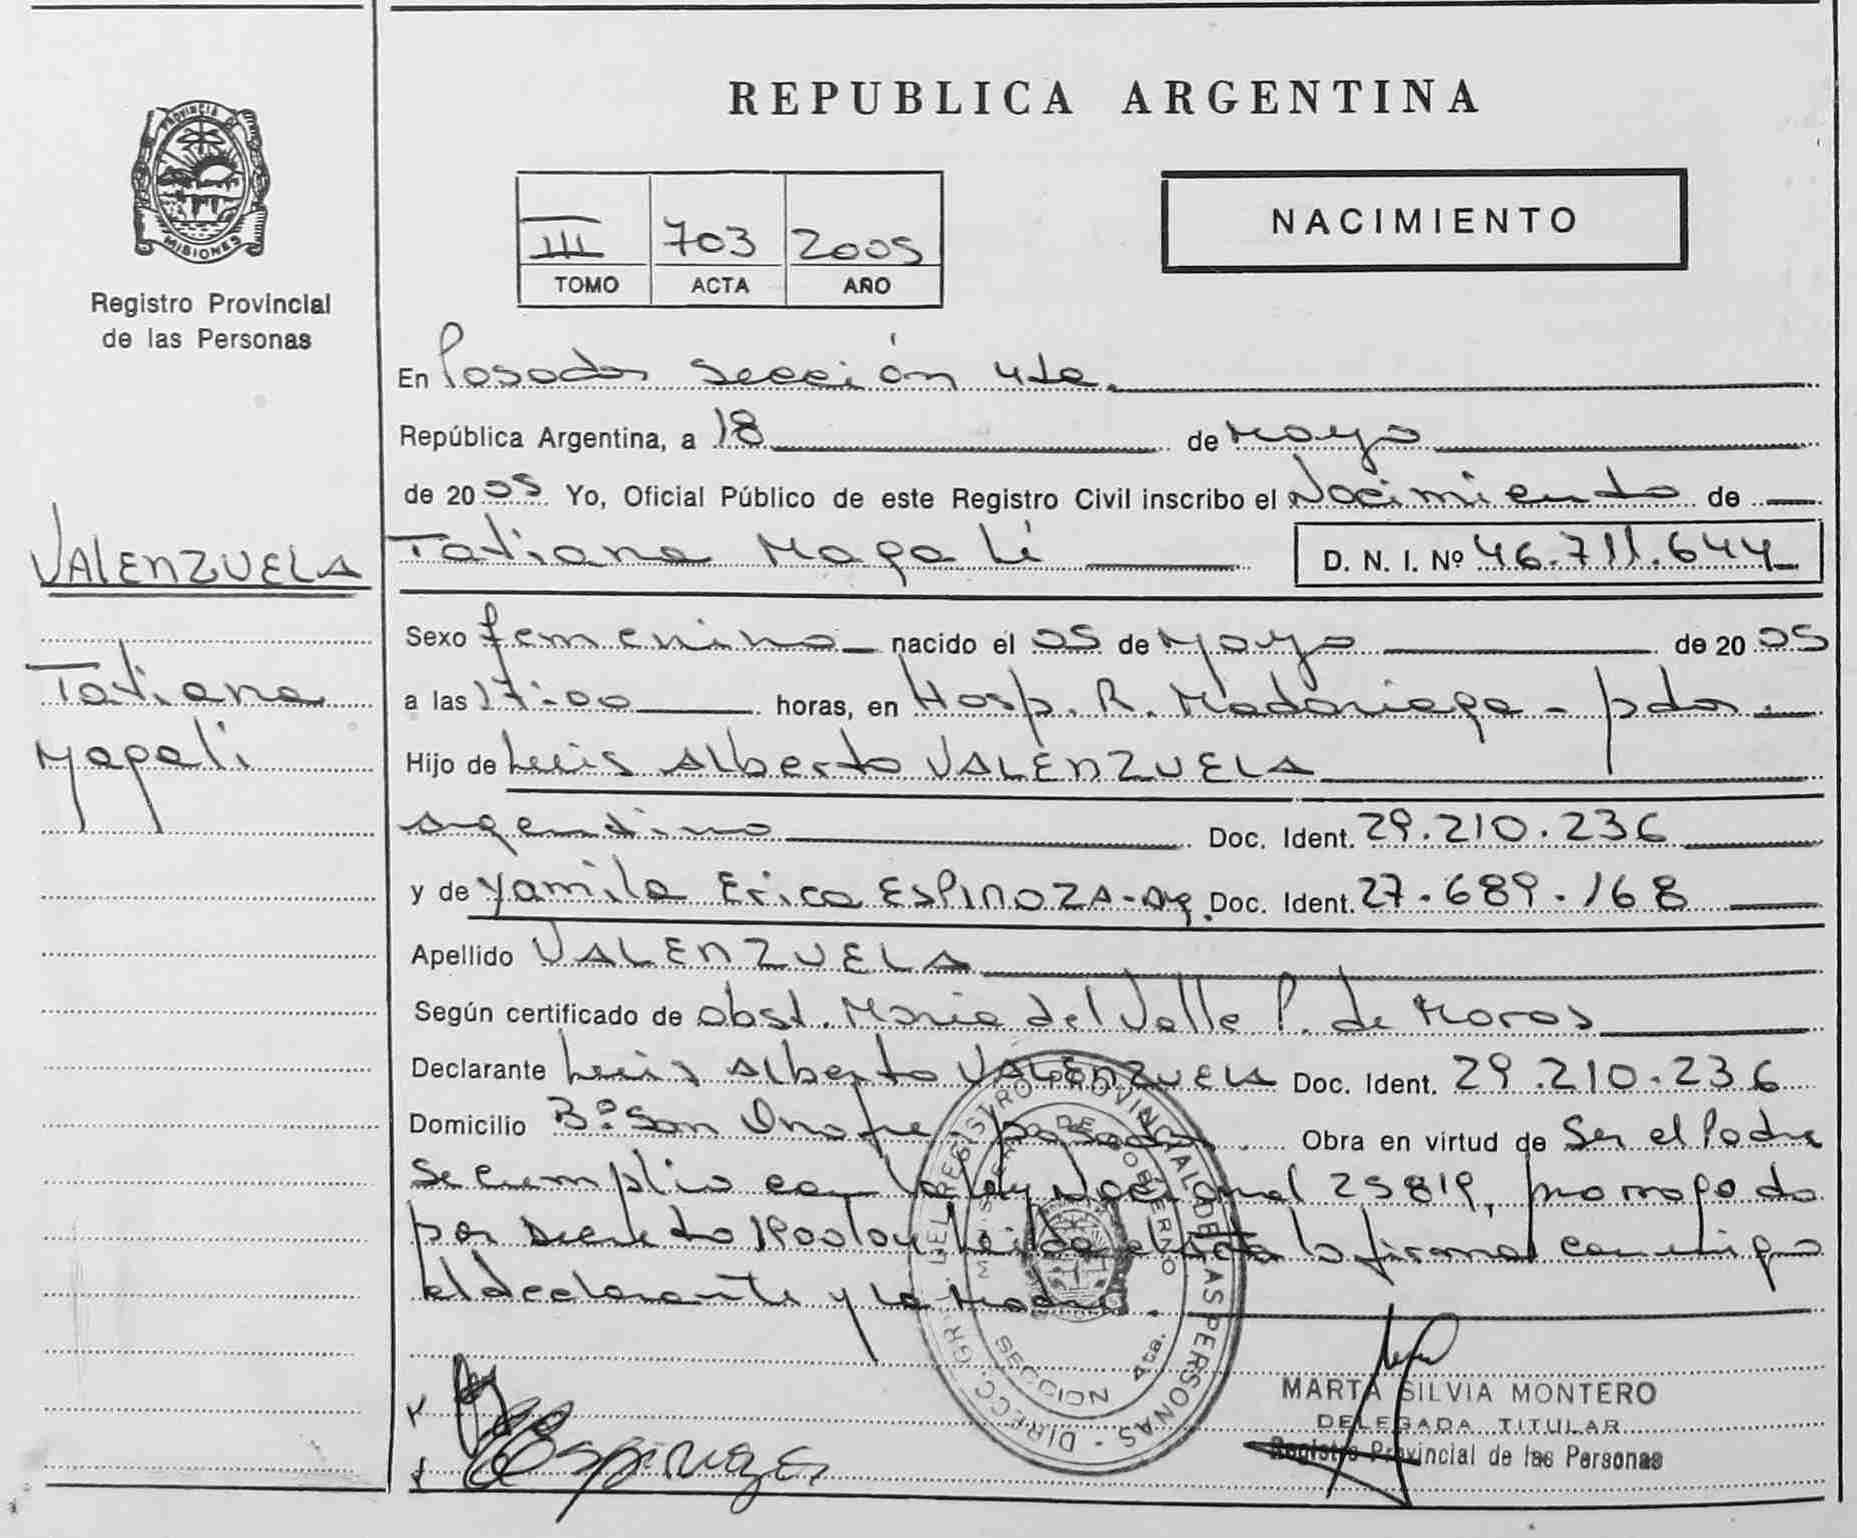 PROVINCIA DE
MISIONES
Registro Provincial
de las Personas
VALENZUELA
Tatiana
Magali
REPUBLICA ARGENTINA
NACIMIENTO
III 703 2005
TOMO ACTA AÑO
En Posadas Sección 4ta.
República Argentina, a 18 de Mayo
de 2005 Yo, Oficial Público de este Registro Civil inscribo el Nacimiento de
Tatiana Magalí D. N. I. Nº 46.711.644
Sexo femenino nacido el 05 de Mayo de 2005
a las 17:00 horas, en Hosp. R. Madariaga - pdas.
Hijo de Luis Alberto VALENZUELA
argentino Doc. Ident. 29.210.236
y de Yamila Erica ESPINOZA - arg. Doc. Ident. 27.689.168
Apellido VALENZUELA
Según certificado de obst. Maria del Valle P. de Moras
Declarante Luis Alberto VALENZUELA Doc. Ident. 29.210.236
Domicilio Bº San Onofre - posadas. Obra en virtud de Ser el Padre
Se cumplio con la ley Nacional 25819, prorrogado
por Decreto 1900/04 Leida el acta la firman conmigo
el declarante y la Madre.
DIRECC. GRAL. DEL REGISTRO PROVINCIAL DE LAS PERSONAS -
MINISTERIO DE GOBIERNO
SECCION 4ta.
Espinoza
MARTA SILVIA MONTERO
DELEGADA TITULAR
Registro Provincial de las Personas